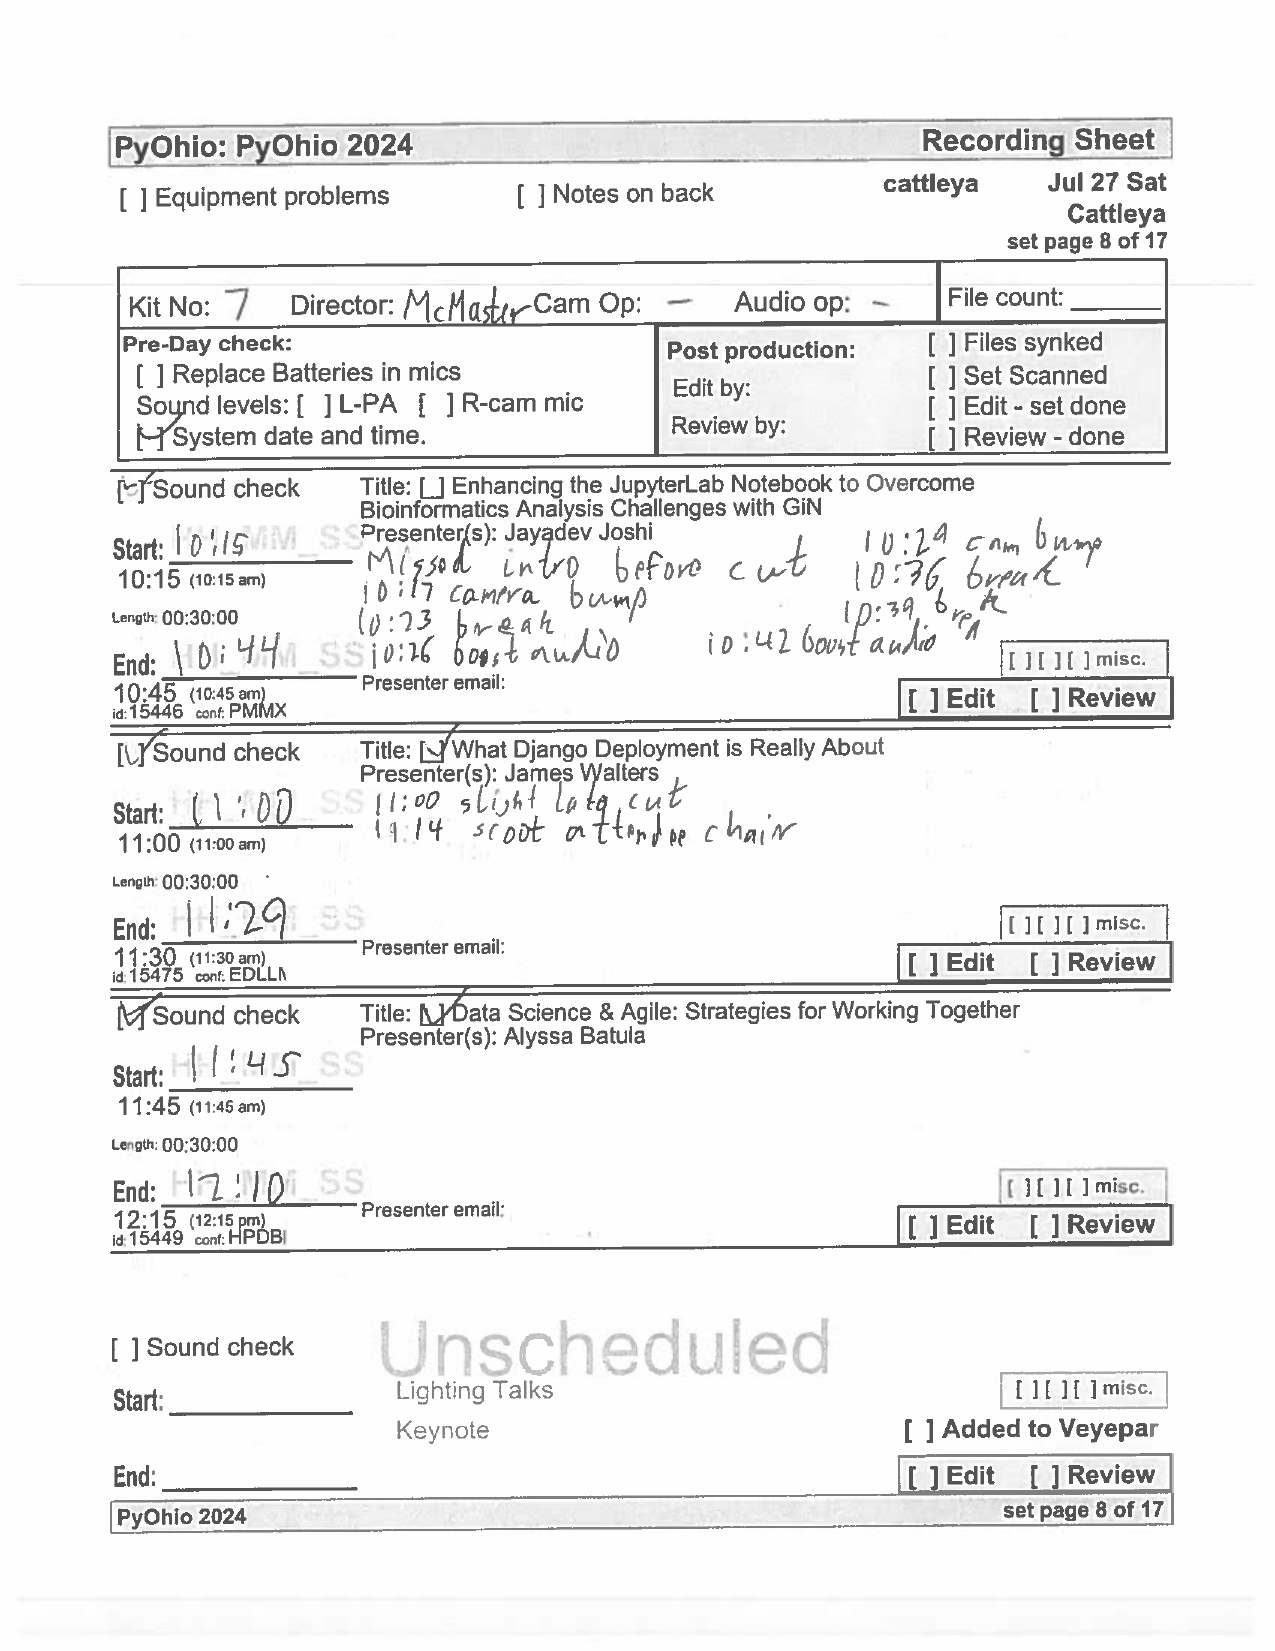 PyOhio: PyOhio 2024 Recording Sheet
[ ] Equipment problems [ ] Notes on back cattleya Jul 27 Sat
Cattleya
set page 8 of 17
Kit No: 7 Director: McMaster Cam Op: - Audio op: - File count:
Pre-Day check: Post production: [ ] Files synked
[ ] Replace Batteries in mics [ ] Set Scanned
Sound levels: [ ] L-PA [ ] R-cam mic Edit by: [ ] Edit - set done
[✓] System date and time. Review by: [ ] Review - done
[✓] Sound check Title: [ ] Enhancing the JupyterLab Notebook to Overcome
Bioinformatics Analysis Challenges with GiN
Presenter(s): Jayadev Joshi
Start: 10:15 HH_MM_SS Missed intro before cut 10:29 cam bump
10:15 (10:15 am) 10:17 camera bump 10:36 break
Length: 00:30:00 10:23 break 10:39 break
End: 10:44 HH_MM_SS 10:26 boost audio 10:42 boost audio [ ] [ ] [ ] misc.
10:45 (10:45 am) Presenter email: [ ] Edit [ ] Review
id: 15446 conf: PMMX
[✓] Sound check Title: [✓] What Django Deployment is Really About
Presenter(s): James Walters
Start: 11:00 HH_MM_SS 11:00 slight late cut
11:00 (11:00 am) 11:14 scoot attendee chair
Length: 00:30:00
End: 11:29 HH_MM_SS [ ] [ ] [ ] misc.
11:30 (11:30 am) Presenter email: [ ] Edit [ ] Review
id: 15475 conf: EDLLN
[✓] Sound check Title: [✓] Data Science & Agile: Strategies for Working Together
Presenter(s): Alyssa Batula
Start: 11:45 HH_MM_SS
11:45 (11:45 am)
Length: 00:30:00
End: 12:10 HH_MM_SS [ ] [ ] [ ] misc.
12:15 (12:15 pm) Presenter email: [ ] Edit [ ] Review
id: 15449 conf: HPDB
[ ] Sound check Unscheduled
Start: Lighting Talks [ ] [ ] [ ] misc.
Keynote [ ] Added to Veyepar
End: [ ] Edit [ ] Review
PyOhio 2024 set page 8 of 17